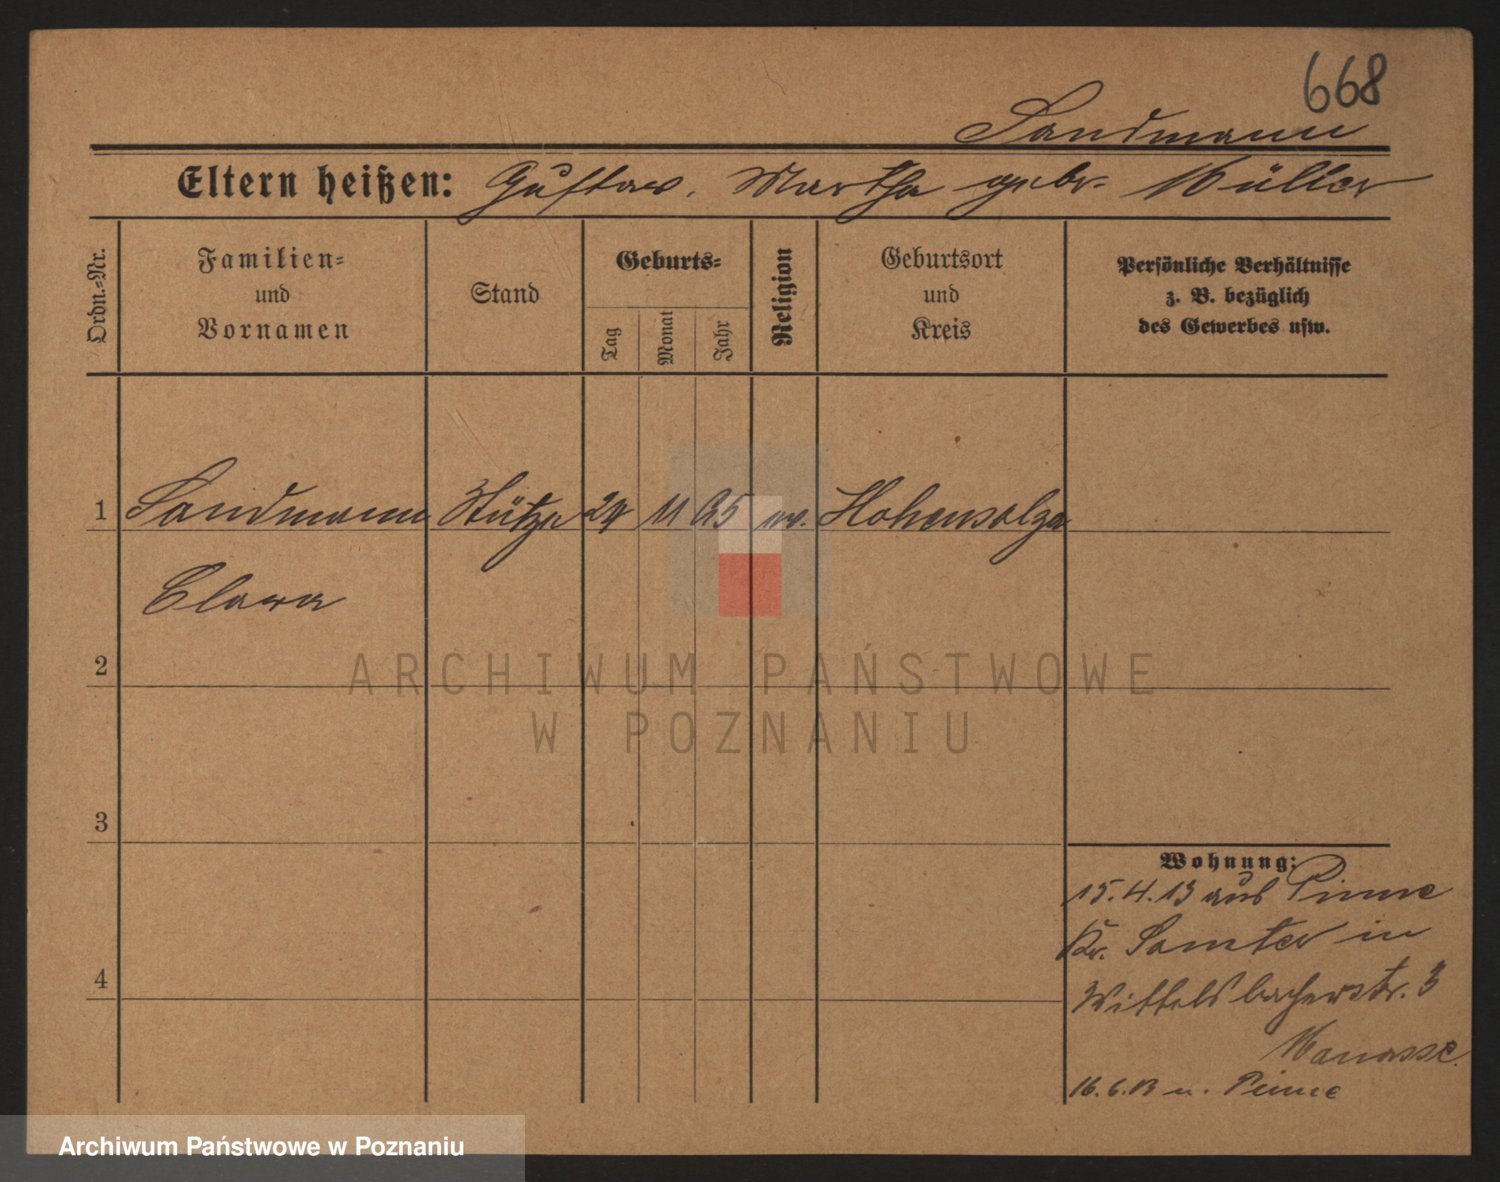 668
Sandmann
Eltern heißen: Gustav. Martha gebr. Müller
Ordn.-Nr.
Familien- und Vornamen
Stand
Geburts-
Tag
Monat
Jahr
Religion
Geburtsort und Kreis
Persönliche Verhältnisse
z. B. bezüglich
des Gewerbes usw.
1 Sandmann Stütze 24 11 95 ev. Hohensalza
Clara
2
ARCHIWUM PAŃSTWOWE
W POZNANIU
3
Wohnung:
15.4.13 aus Pinne
Kr. Samter in
Wittelsbacherstr. 3
Manasse
4
16.6.13 n. Pinne
Archiwum Państwowe w Poznaniu